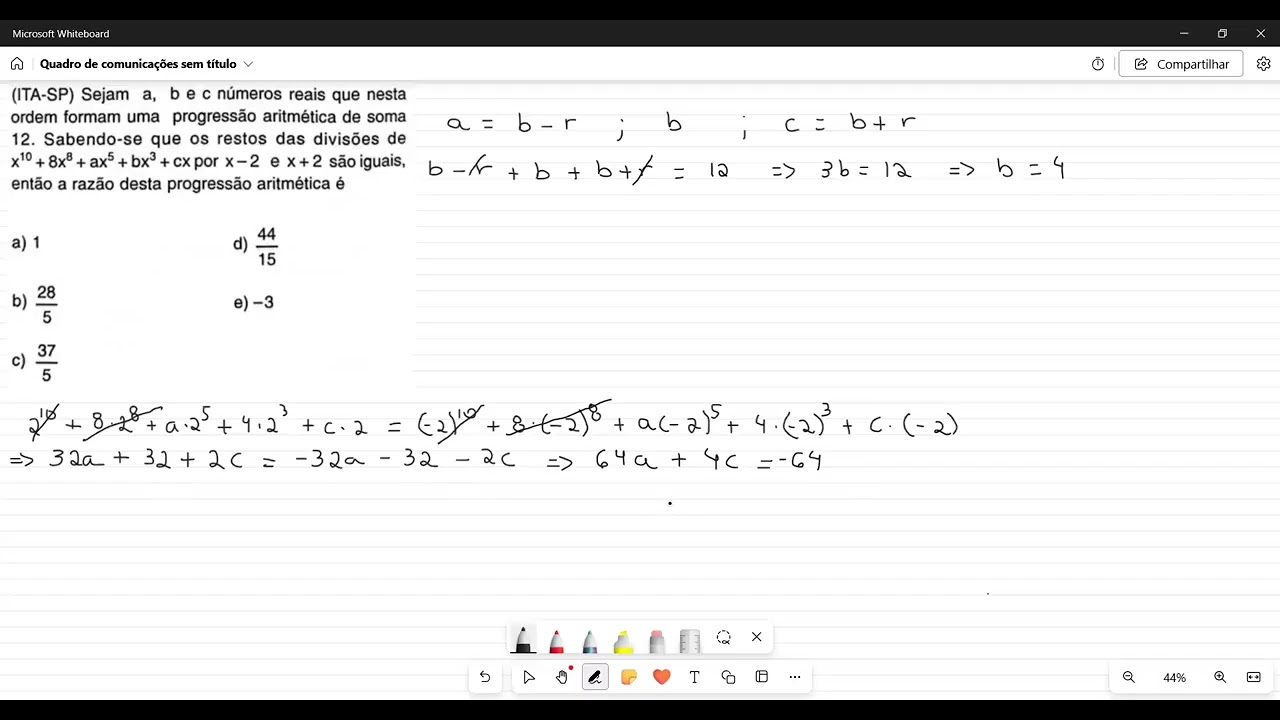 Microsoft Whiteboard
Quadro de comunicações sem título
Compartilhar
(ITA-SP) Sejam a, b e c números reais que nesta
ordem formam uma progressão aritmética de soma
12. Sabendo-se que os restos das divisões de
x¹⁰ + 8x⁸ + ax⁵ + bx³ + cx por x − 2 e x + 2 são iguais,
então a razão desta progressão aritmética é
a) 1
d) 44/15
b) 28/5
e) −3
c) 37/5
a = b - r ; b ; c = b + r
b - r + b + b + r = 12 => 3b = 12 => b = 4
2¹⁰ + 8·2⁸ + a·2⁵ + 4·2³ + c·2 = (-2)¹⁰ + 8·(-2)⁸ + a(-2)⁵ + 4·(-2)³ + c·(-2)
=> 32a + 32 + 2c = -32a - 32 - 2c => 64a + 4c = -64
44%